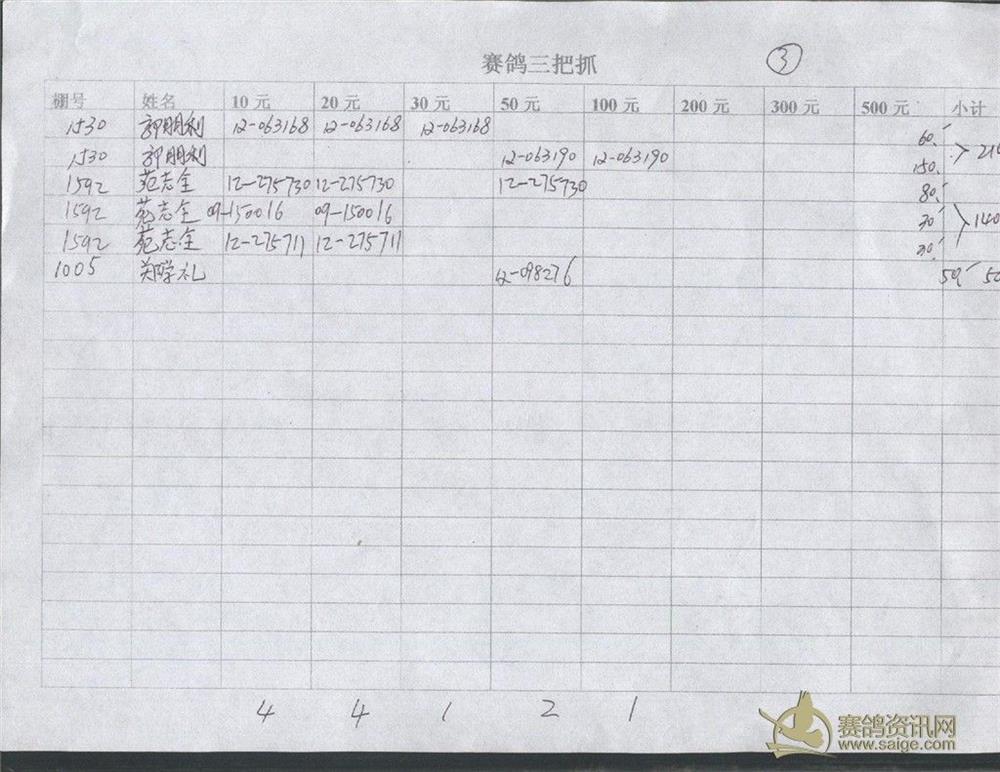 赛鸽三把抓 ③
棚号 姓名 10 元 20 元 30 元 50 元 100 元 200 元 300 元 500 元 小计
1530 郭朋利 12-063168 12-063168 12-063168 60.
1530 郭朋利 12-063190 12-063190 150. 210
1592 范志全 12-275730 12-275730 12-275730 80.
1592 范志全 09-150016 09-150016 30. 140
1592 范志全 12-275711 12-275711 30.
1005 郑学礼 12-098276 50. 50
4 4 1 2 1
赛鸽资讯网
www.saige.com